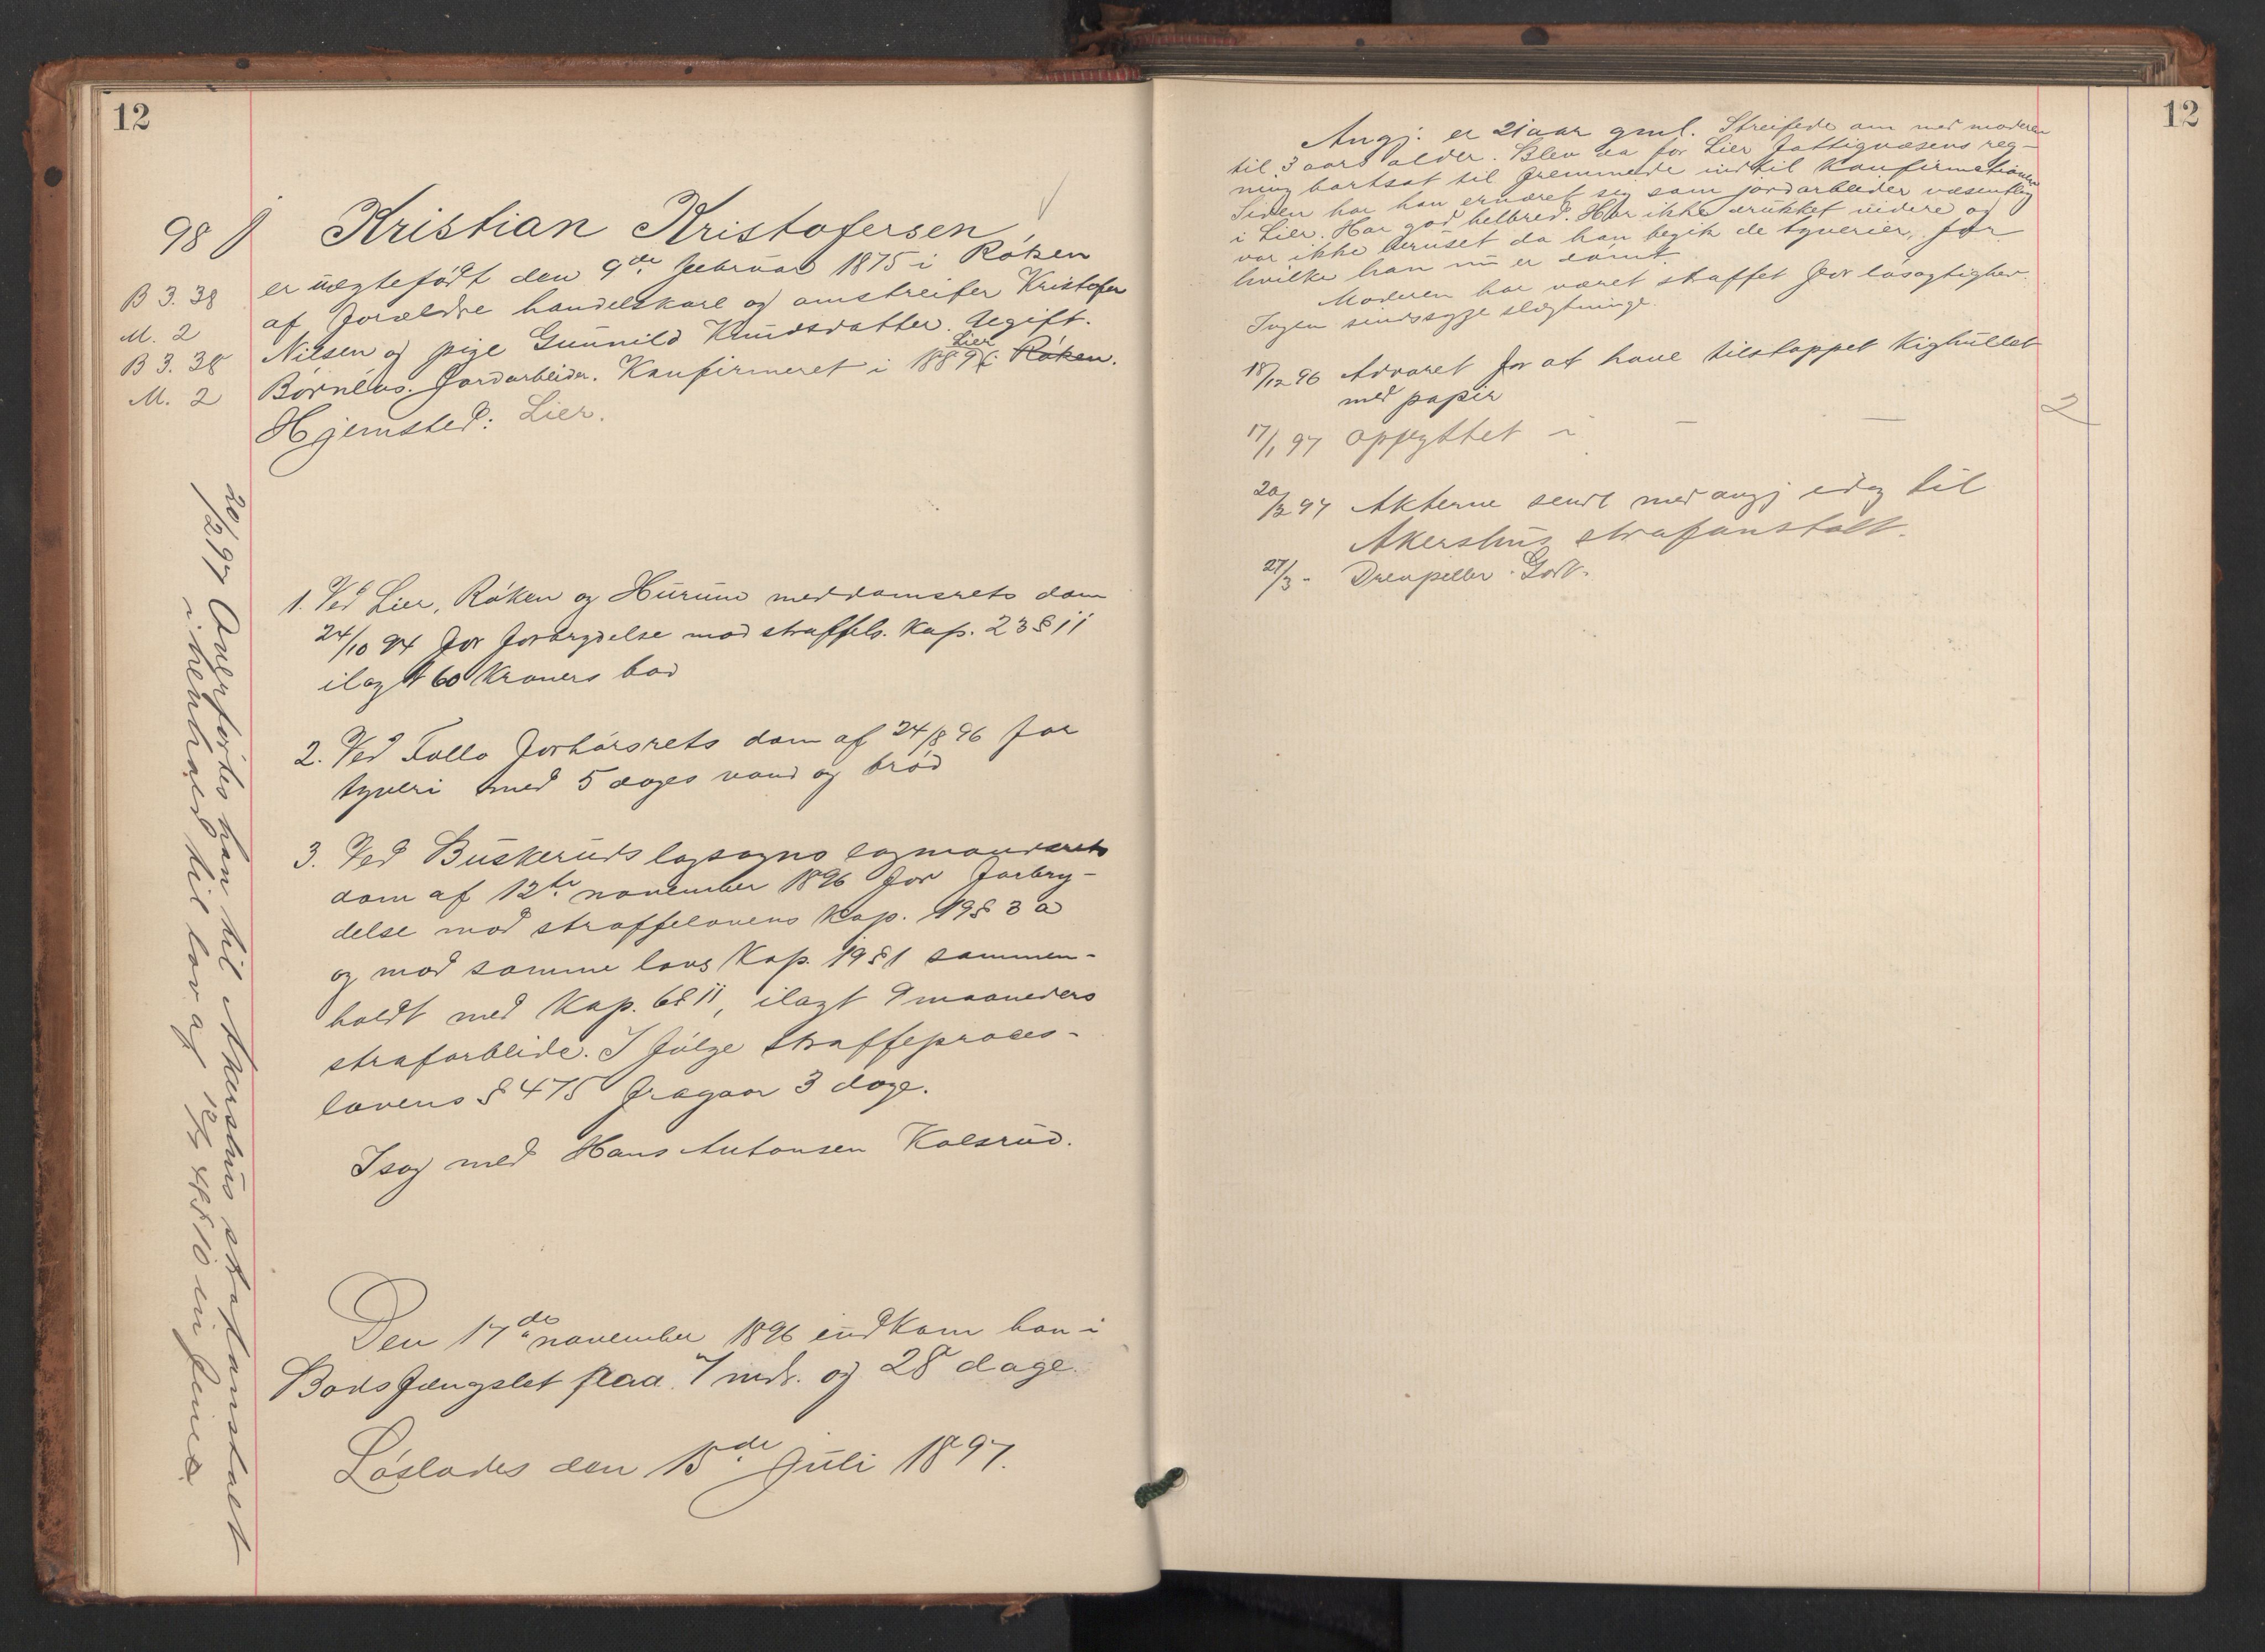 12
98
B 3. 38
M. 2
B 3. 38
M. 2
Kristian Kristofersen,
er uægtefødt den 9de februar 1875 i Røken
af forældre handelskarl og omstreifer Kristofer
Nilsen og pige Gunnild Knudsdatter. Ugift.
Barnløs. Jordarbeider. Konfirmeret i 1889 i Røken.
Lier
Hjemsted: Lier.
1. Ved Lier, Røken og Hurum meddomsrets dom
24/10 94 for forbrydelse mod straffels. Kap. 23 § 11
ilagt 60 Kroners bod
2. Ved Follo forhørsrets dom af 24/8 96 for
tyveri med 5 dages vand og brød
3. Ved Buskeruds lagsogns lagmandsrets
dom af 12te november 1896 for forbry-
delse mod straffelovens Kap. 19 § 3 a
og mod samme lovs Kap. 19 § 1 sammen-
holdt med Kap. 6 § 11, ilagt 9 maaneders
strafarbeide. I følge straffeproces-
lovens § 475 fragaar 3 dage.
I sag med Hans Antonsen Kolsrud.
Den 17de november 1896 indkom han i
Bodsfængslet paa 7 mdr. og 28 dage.
Løslades den 15de juli 1897.
20/3 97 Overførtes han til Akershus strafanstalt
i henhold til lov af 12/7 48 § 10 in fine.
12
Angj. er 21 aar gml. Streifede om med moderen
til 3 aars alder. Blev da for Lier fattigvæsens reg-
ning bortsat til fremmede indtil konfirmationen
Siden har han ernæret sig som jordarbeider væsentlig
i Lier. Har god helbred. Har ikke drukket videre og
var ikke beruset da han begik de tyverier, for
hvilke han nu er dømt.
Moderen har været straffet for løsagtighed.
Ingen sindssyge slægtninge.
18/12 96 Advaret for at have tilstoppet kighullet
med papir
2
17/1 97 opflyttet i — —
20/3 97 Akterne sendt med angj idag til
Akershus strafanstalt.
27/3 -